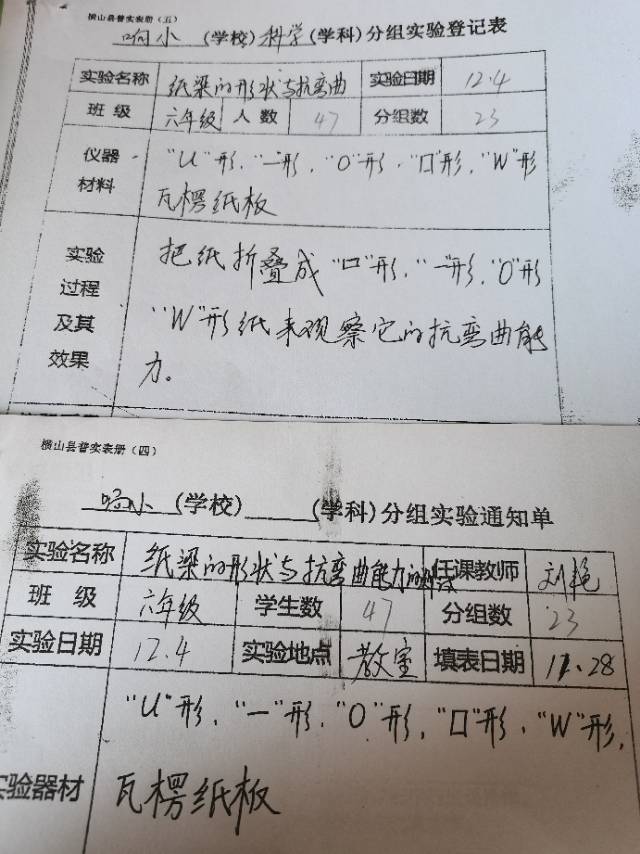 横山县普实表册（五）
响小（学校）科学（学科）分组实验登记表
实验名称 纸梁的形状与抗弯曲 实验日期 12.4
班 级 六年级 人 数 47 分组数 23
仪器材料 "U"形，"一"形，"O"形，"口"形，"W"形
瓦楞纸板
实验过程及其效果 把纸折叠成"口"形，"一"形，"O"形
"W"形纸来观察它的抗弯曲能
力。
横山县普实表册（四）
响小（学校）（学科）分组实验通知单
实验名称 纸梁的形状与抗弯曲能力的 任课教师 刘艳
班 级 六年级 学生数 47 分组数 23
实验日期 12.4 实验地点 教室 填表日期 11.28
"U"形，"一"形，"O"形，"口"形，"W"形，
实验器材 瓦楞纸板